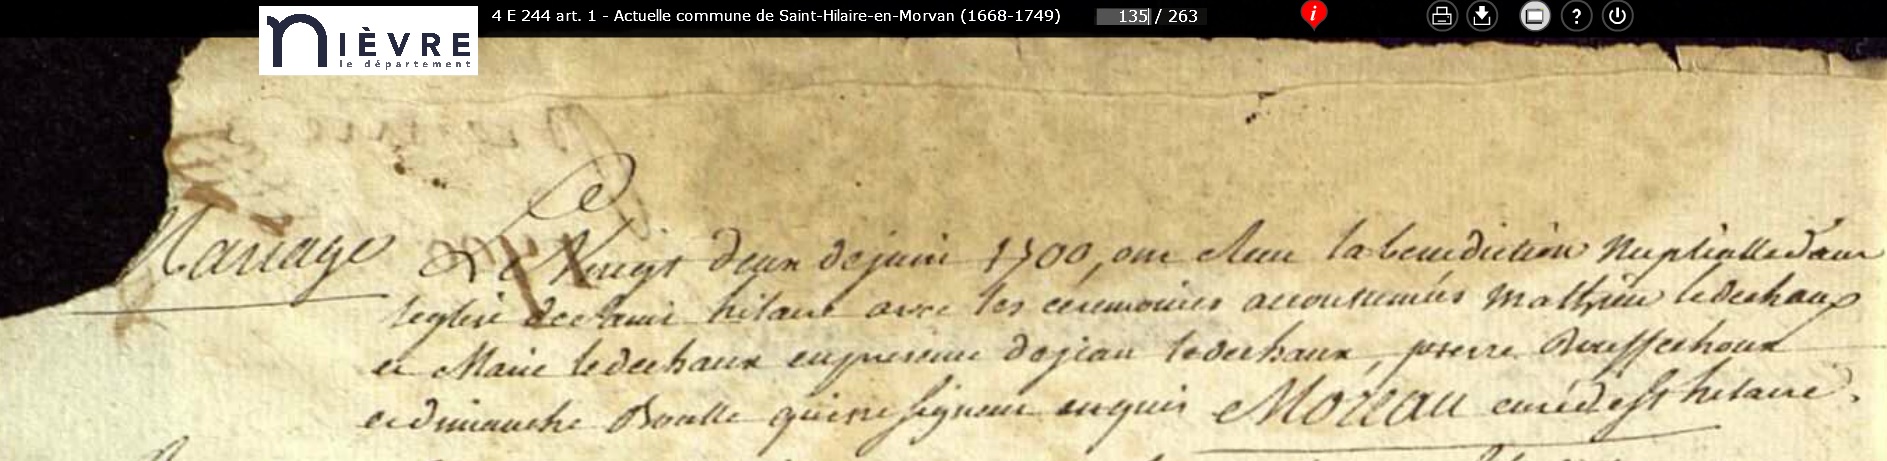 4 E 244 art. 1 - Actuelle commune de Saint-Hilaire-en-Morvan (1668-1749)
135 / 263
NIÈVRE
le département
Mariage
Le Vingt deux de juin 1700, ont Reçu la benediction Nuptialle dans
leglise de Saint hilaire avec les ceremonies accoutumées Mathieu ledechaux
et Marie ledechaux en presence de jean ledechaux, pierre
et dimanche qui ne signent enquis Moreau curé de St hilaire.